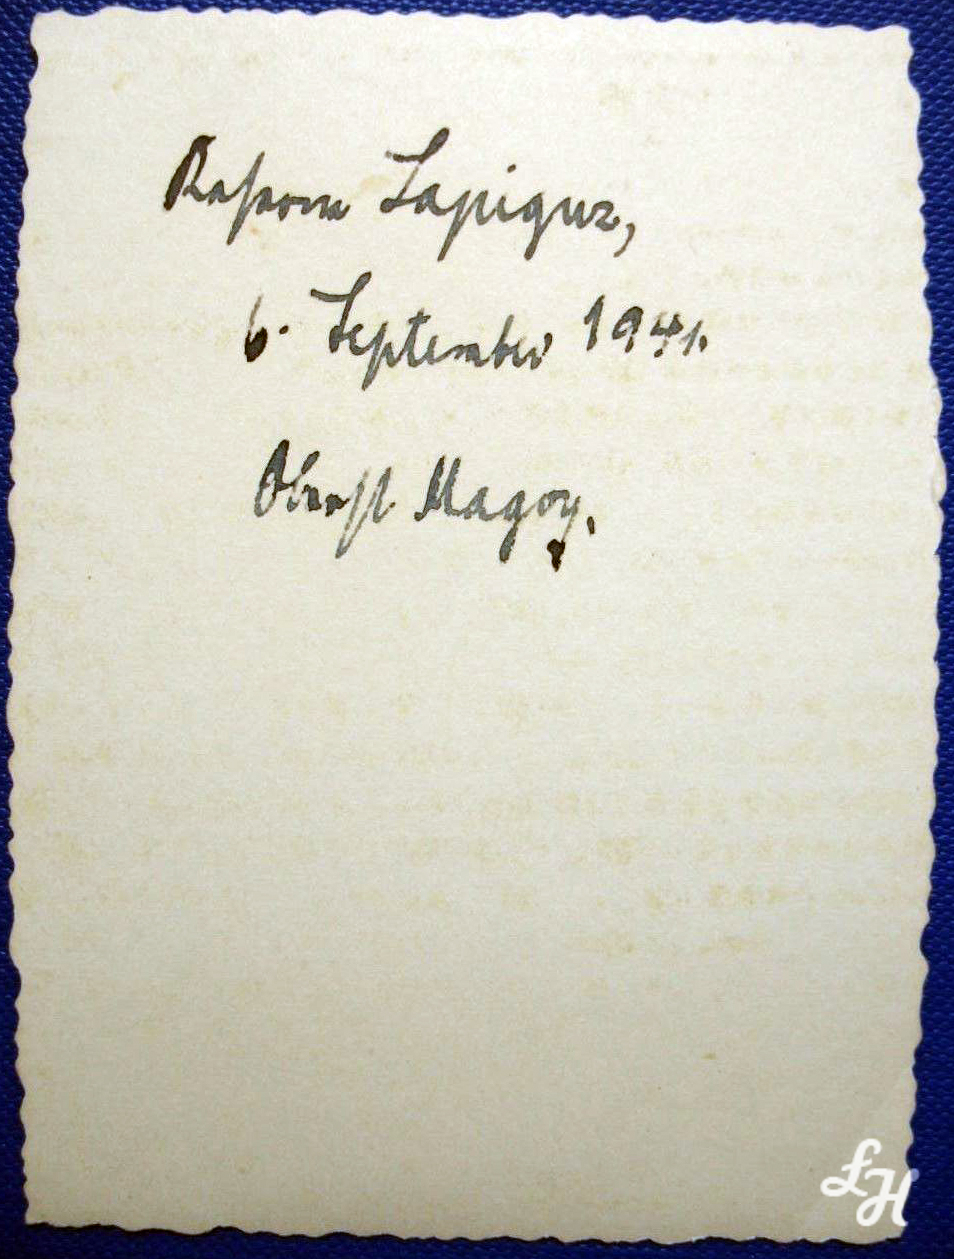 Lapiguz,
6. September 1941.
Oberst Magoy.
LH